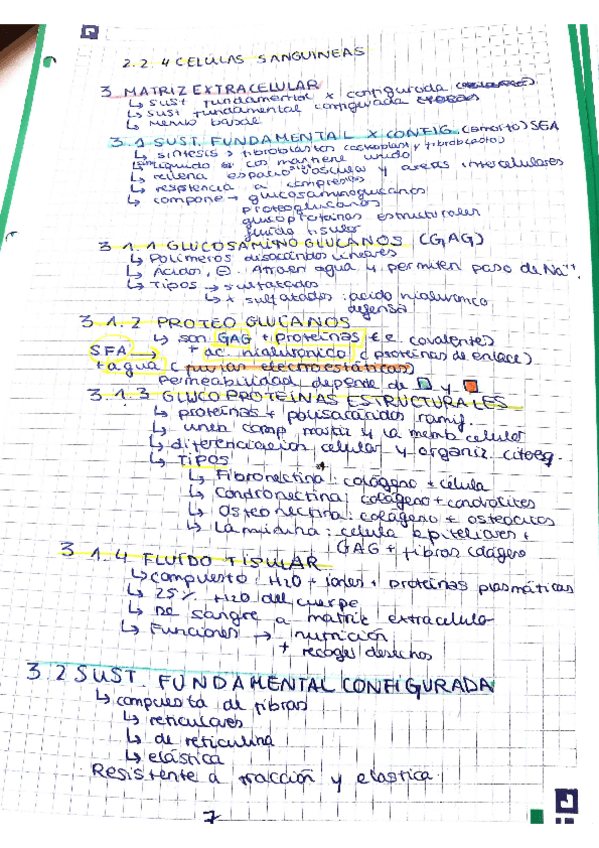 2.2.4 CELULAS SANGUINEAS
3 MATRIZ EXTRACELULAR
↳ sust fundamental x configurada
↳ sust fundamental configurada
↳ memb basal
3.1 SUST. FUNDAMENTAL X CONFIG. (amorfo) SFA
↳ sintesis → fibroblastos
↳ liquido los mantiene unido
↳ rellena espacio y areas intercelulares
↳ resistencia a compresion
↳ compone → glucosaminoglucanos
proteoglucanos
glucoproteinas estructurales
fluido tisular
3.1.1 GLUCOSAMINO GLUCANOS (GAG)
↳ Polimeros disacáridos lineares
↳ Ácidos, ⊖. Atraen agua y permiten paso de Na⁺.
↳ Tipos → sulfatados
↳ x sulfatados: acido hialuronico
defensa
3.1.2 PROTEO GLUCANOS
↳ son GAG + proteinas (e. covalentes)
SFA → + ac. hialuronico (proteinas de enlace)
+ agua ( electroestáticas)
Permeabilidad depende de y
3.1.3 GLUCOPROTEINAS ESTRUCTURALES
↳ proteinas + polisacaridos ramif.
↳ unen comp matriz y la memb celular
↳ diferenciacion celular y organiz. citoeq.
↳ TIPOS
↳ Fibronectina: colágeno + célula
↳ Condronectina: colágeno + condrocitos
↳ Osteonectina: colágeno + osteocitos
↳ Laminina: célula epiteliares +
GAG + fibras colágeno
3.1.4 FLUIDO TISULAR
↳ compuesto: H2O + iones + proteinas plasmáticas
↳ 25% H2O del cuerpo
↳ De sangre a matriz extracelular
↳ Funciones → nutrición
+ recoger desechos
3.2 SUST. FUNDAMENTAL CONFIGURADA
↳ compuesta de fibras
↳ reticulares
↳ de reticulina
↳ elástica
Resistente a tracción y elastica.
7